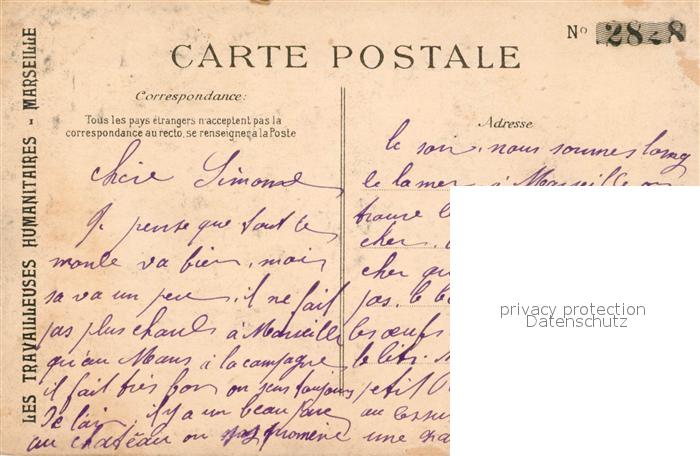 Nº 2828
CARTE POSTALE
LES TRAVAILLEUSES HUMANITAIRES - MARSEILLE
Correspondance:
Tous les pays étrangers n'acceptent pas la
correspondance au recto, se renseigner à la Poste
Adresse
Chère Simone
Je pense que tout le
monde va bien, moi
sa va un peu, il ne fait
pas plus chaud à Marseille
qu'au Mans à la campagne
il fait très bon on sens toujours
de l'air, il y a un beau parc
au château on promène
le soir, nous sommes
le la mer à Marseille on
trouve
cher.
cher
pas. le
les œufs
le litre.
petit
au
une
privacy protection
Datenschutz